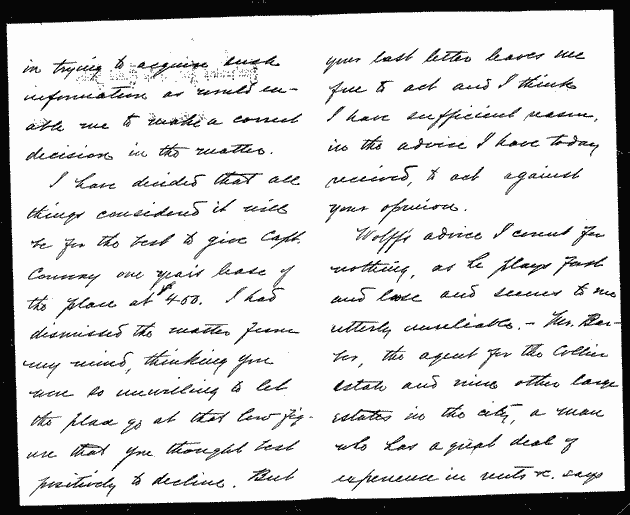 in trying to acquire such
information as would en-
able me to make a correct
decision in the matter.
I have decided that all
things considered it will
be for the best to give Capt.
Conway one year's lease of
the place at $400. I had
dismissed the matter from
my mind, thinking you
were so unwilling to let
the place go at that low fig-
ure that you thought best
positively to decline. But
your last letter leaves me
free to act and I think
I have sufficient reason,
in the advice I have today
received, to act against
your opinion.
Wolff's advice I count for
nothing, as he plays fast
and loose and seems to me
utterly unreliable. - Mr. Bar-
ber, the agent for the Collier
estate and nine other large
estates in the city, a man
who has a great deal of
experience in rents &c. says